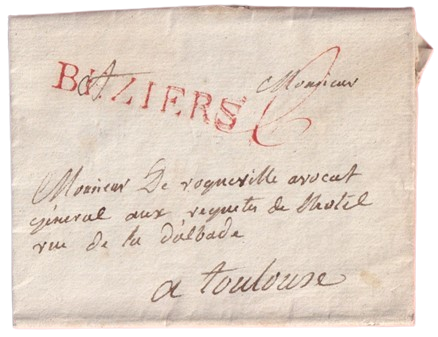 BEZIERS
A Monsieur
Monsieur De rogueville avocat
général aux requetes de l'hotel
rue de la dalbade
a toulouse